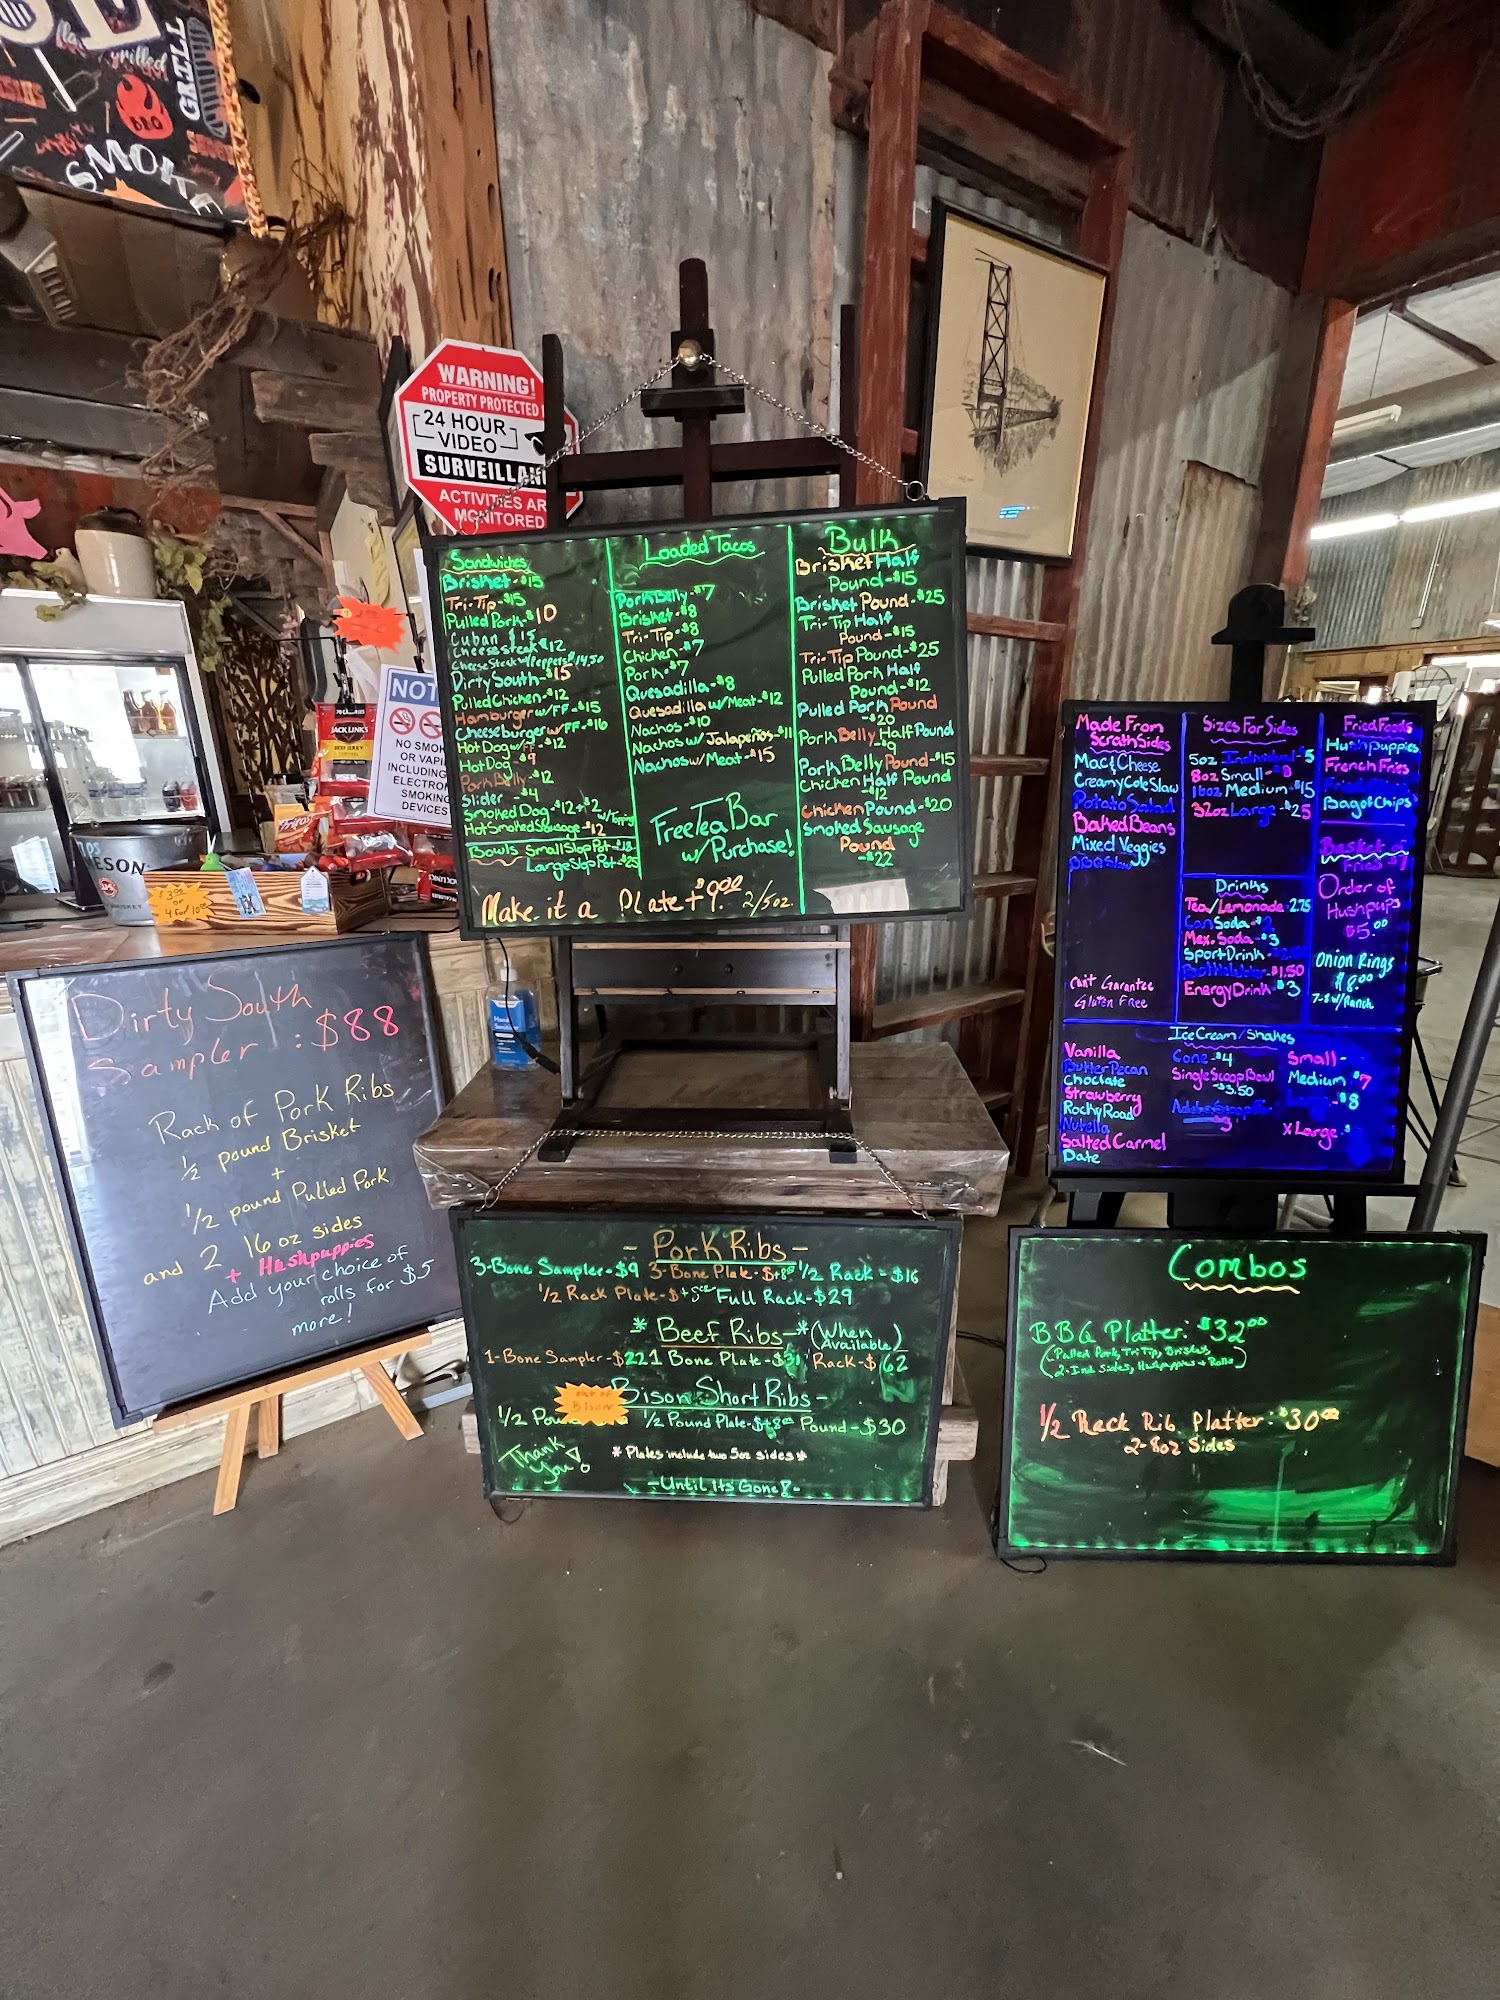 grilled
GRILL
BBQ
SMOKE
WARNING!
PROPERTY PROTECTED
24 HOUR
VIDEO
SURVEILLAN
ACTIVITIES AR
MONITORED
NOT
NO SMOK
OR VAPI
INCLUDING
ELECTRON
SMOKING
DEVICES
JACK LINK'S
BEEF JERKY
Fritos
ESON
$3.00
or
4 for 10.00
Hand
Sandwiches
Brisket-$15
Tri-Tip-$15
Pulled Pork-$10
Cuban $15
Cheesesteak $12
Cheese Steak w/Peppers $14.50
Dirty South-$15
Pulled Chicken-$12
Hamburger w/FF-$15
Cheeseburger w/FF-$16
Hot Dog w/FF-$12
Hot Dog-$9
Pork Belly-$12
Slider-$4
Smoked Dog-$12+$2 w/Topping
Hot Smoked Sausage-$12
Bowls Small Slop Pot-$18
Large Slop Pot-$25
Loaded Tacos
Pork Belly-$7
Brisket-$8
Tri-Tip-$8
Chicken-$7
Pork-$7
Quesadilla-$8
Quesadilla w/Meat-$12
Nachos-$10
Nachos w/Jalapeños-$11
Nachos w/Meat-$15
Free Tea Bar
w/Purchase!
Bulk
Brisket Half
Pound-$15
Brisket Pound-$25
Tri-Tip Half
Pound-$15
Tri-Tip Pound-$25
Pulled Pork Half
Pound-$12
Pulled Pork Pound
-$20
Pork Belly Half Pound
-$9
Pork Belly Pound-$15
Chicken Half Pound
-$12
Chicken Pound-$20
Smoked Sausage
Pound
-$22
Make it a Plate+$9.00 2/5oz.
Dirty South
Sampler : $88
Rack of Pork Ribs
1/2 pound Brisket
+
1/2 pound Pulled Pork
and 2 16 oz sides
+ Hushpuppies
Add your choice of
rolls for $5
more!
-Pork Ribs-
3-Bone Sampler-$9 3-Bone Plate-$+8.00 1/2 Rack-$16
1/2 Rack Plate-$+8.00 Full Rack-$29
*Beef Ribs-*(When
Available)
1-Bone Sampler-$22 1 Bone Plate-$31 Rack-$62
Bison Short Ribs-
out of
Bison
1/2 Pou 1/2 Pound Plate-$+8.00 Pound-$30
Thank
You!
*Plates include two 5oz sides*
-Until its Gone!-
Made From
Scrath Sides
Mac&Cheese
Creamy Cole Slaw
Potato Salad
Baked Beans
Mixed Veggies
BBQ Slaw
Can't Garantee
Gluten Free
Sizes For Sides
5oz Individual-$5
8oz Small-$8
16oz Medium-$15
32oz Large-$25
Drinks
Tea/Lemonade-2.75
Can Soda-
Mex. Soda-$3
Sport Drink-
$1.50
Energy Drink-$3
Fried Foods
Hushpuppies
French Fries
Bag of Chips
Basket of
Fries $7
Order of
Hushpups
$5.00
Onion Rings
$8.00
7-8 w/Ranch
Ice Cream/Shakes
Vanilla
Butter Pecan
Choclate
Strawberry
Rocky Road
Nutella
Salted Carmel
Date
Cone-$4
Single Scoop Bowl
-$3.50
Small-
Medium $7
$8
xLarge-$
Combos
BBQ Platter: $32.00
(Pulled Pork, Tri Tip, Brisket
2-Ind Sides, Hushpuppies + Rolls)
1/2 Rack Rib Platter: $30.00
2-8oz Sides